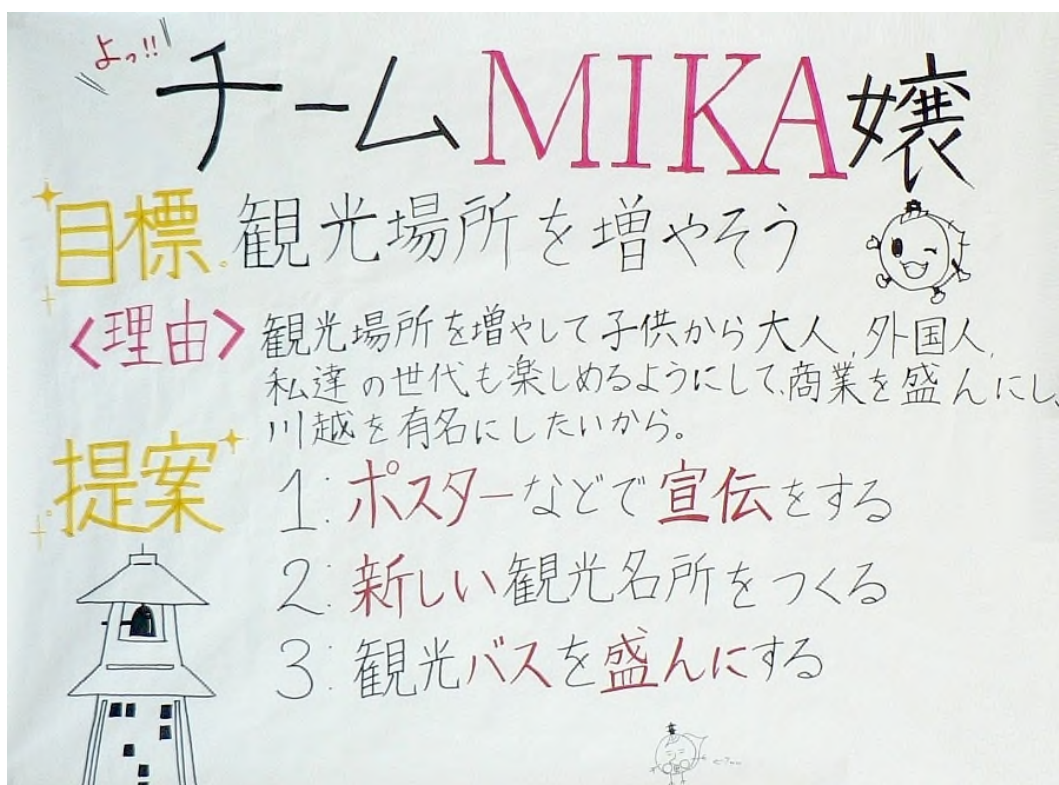 よっ!!
チームMIKA嬢
目標 観光場所を増やそう
〈理由〉 観光場所を増やして子供から大人、外国人、
私達の世代も楽しめるようにして、商業を盛んにし、
川越を有名にしたいから。
提案
1: ポスターなどで宣伝をする
2: 新しい観光名所をつくる
3: 観光バスを盛んにする